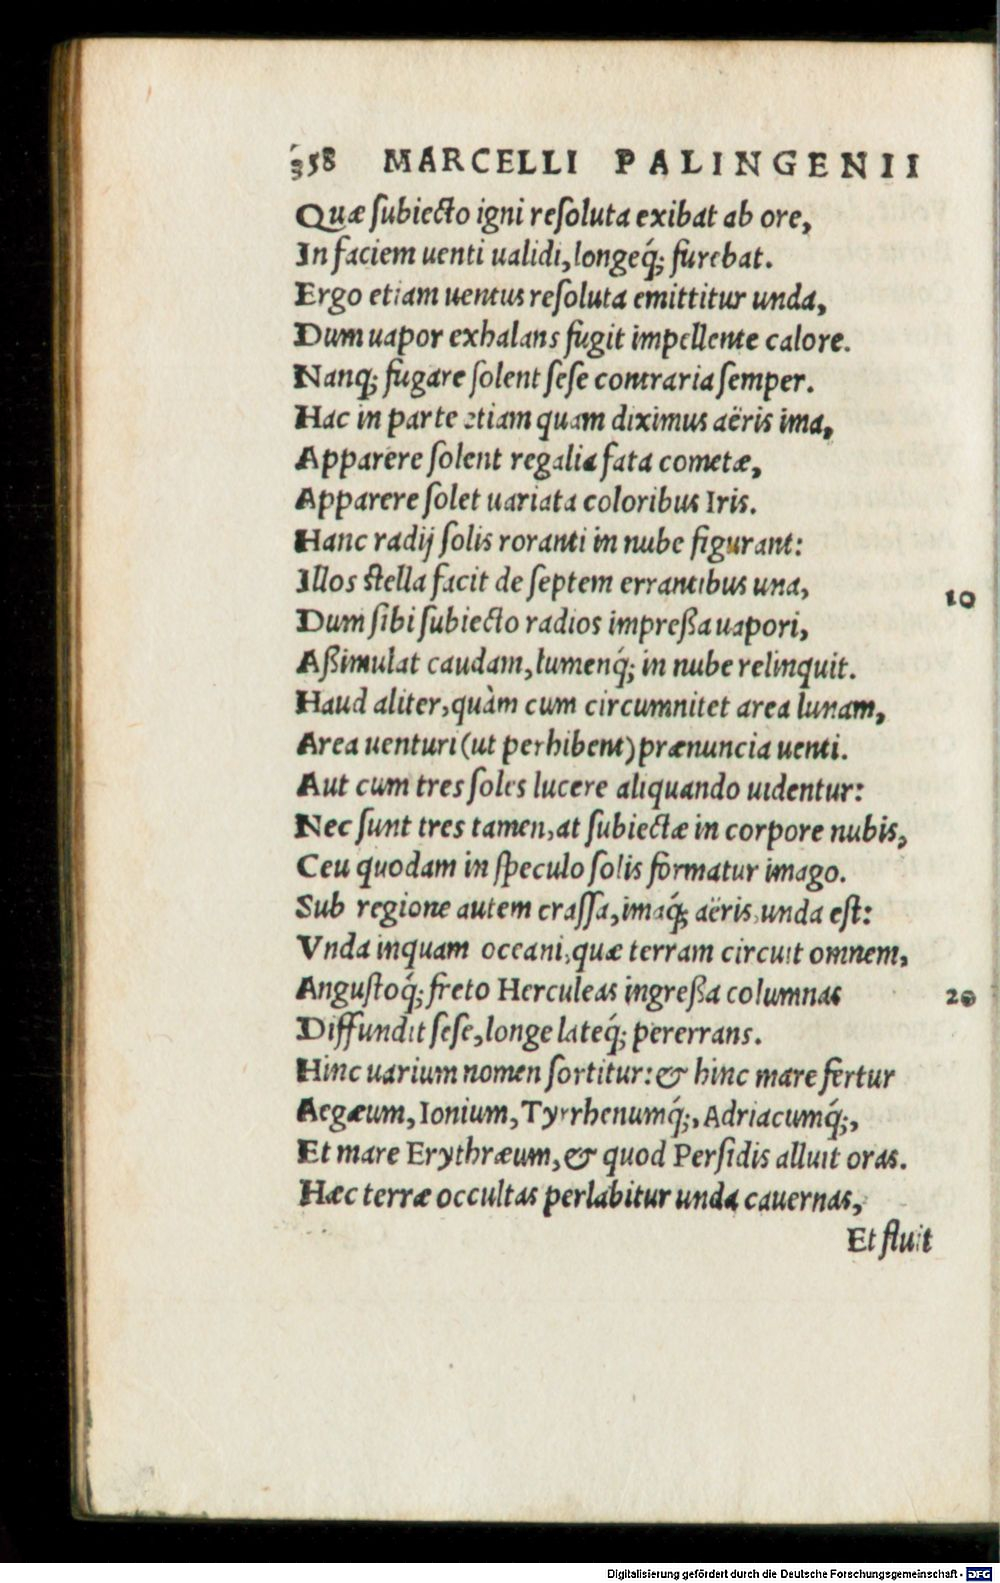 358 MARCELLI PALINGENII
Quæ ſubiecto igni reſoluta exibat ab ore,
In faciem uenti ualidi, longeq́; furebat.
Ergo etiam uentus reſoluta emittitur unda,
Dum uapor exhalans fugit impellente calore.
Nanq; fugare ſolent ſeſe contraria ſemper.
Hac in parte etiam quam diximus aëris ima,
Apparere ſolent regalia fata cometæ,
Apparere ſolet uariata coloribus Iris.
Hanc radij ſolis roranti in nube figurant:
Illos ſtella facit de ſeptem errantibus una, 10
Dum ſibi ſubiecto radios impreßa uapori,
Aßimulat caudam, lumenq́; in nube relinquit.
Haud aliter, quàm cum circumnitet area lunam,
Area uenturi (ut perhibent) prænuncia uenti.
Aut cum tres ſoles lucere aliquando uidentur:
Nec ſunt tres tamen, at ſubiectæ in corpore nubis,
Ceu quodam in ſpeculo ſolis formatur imago.
Sub regione autem craſſa, imaq́; aëris, unda eſt:
Vnda inquam oceani, quæ terram circuit omnem,
Anguſtoq́; freto Herculeas ingreßa columnas 20
Diffundit ſeſe, longe lateq́; pererrans.
Hinc uarium nomen ſortitur: & hinc mare fertur
Aegæum, Ionium, Tyrrhenumq́;, Adriacumq́;,
Et mare Erythræum, & quod Perſidis alluit oras.
Hæc terræ occultas perlabitur unda cauernas,
Et fluit
Digitalisierung gefördert durch die Deutsche Forschungsgemeinschaft - DFG